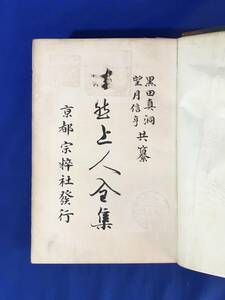 黒田真洞
望月信亨 共纂
法然上人全集
京都 宗粹社發行